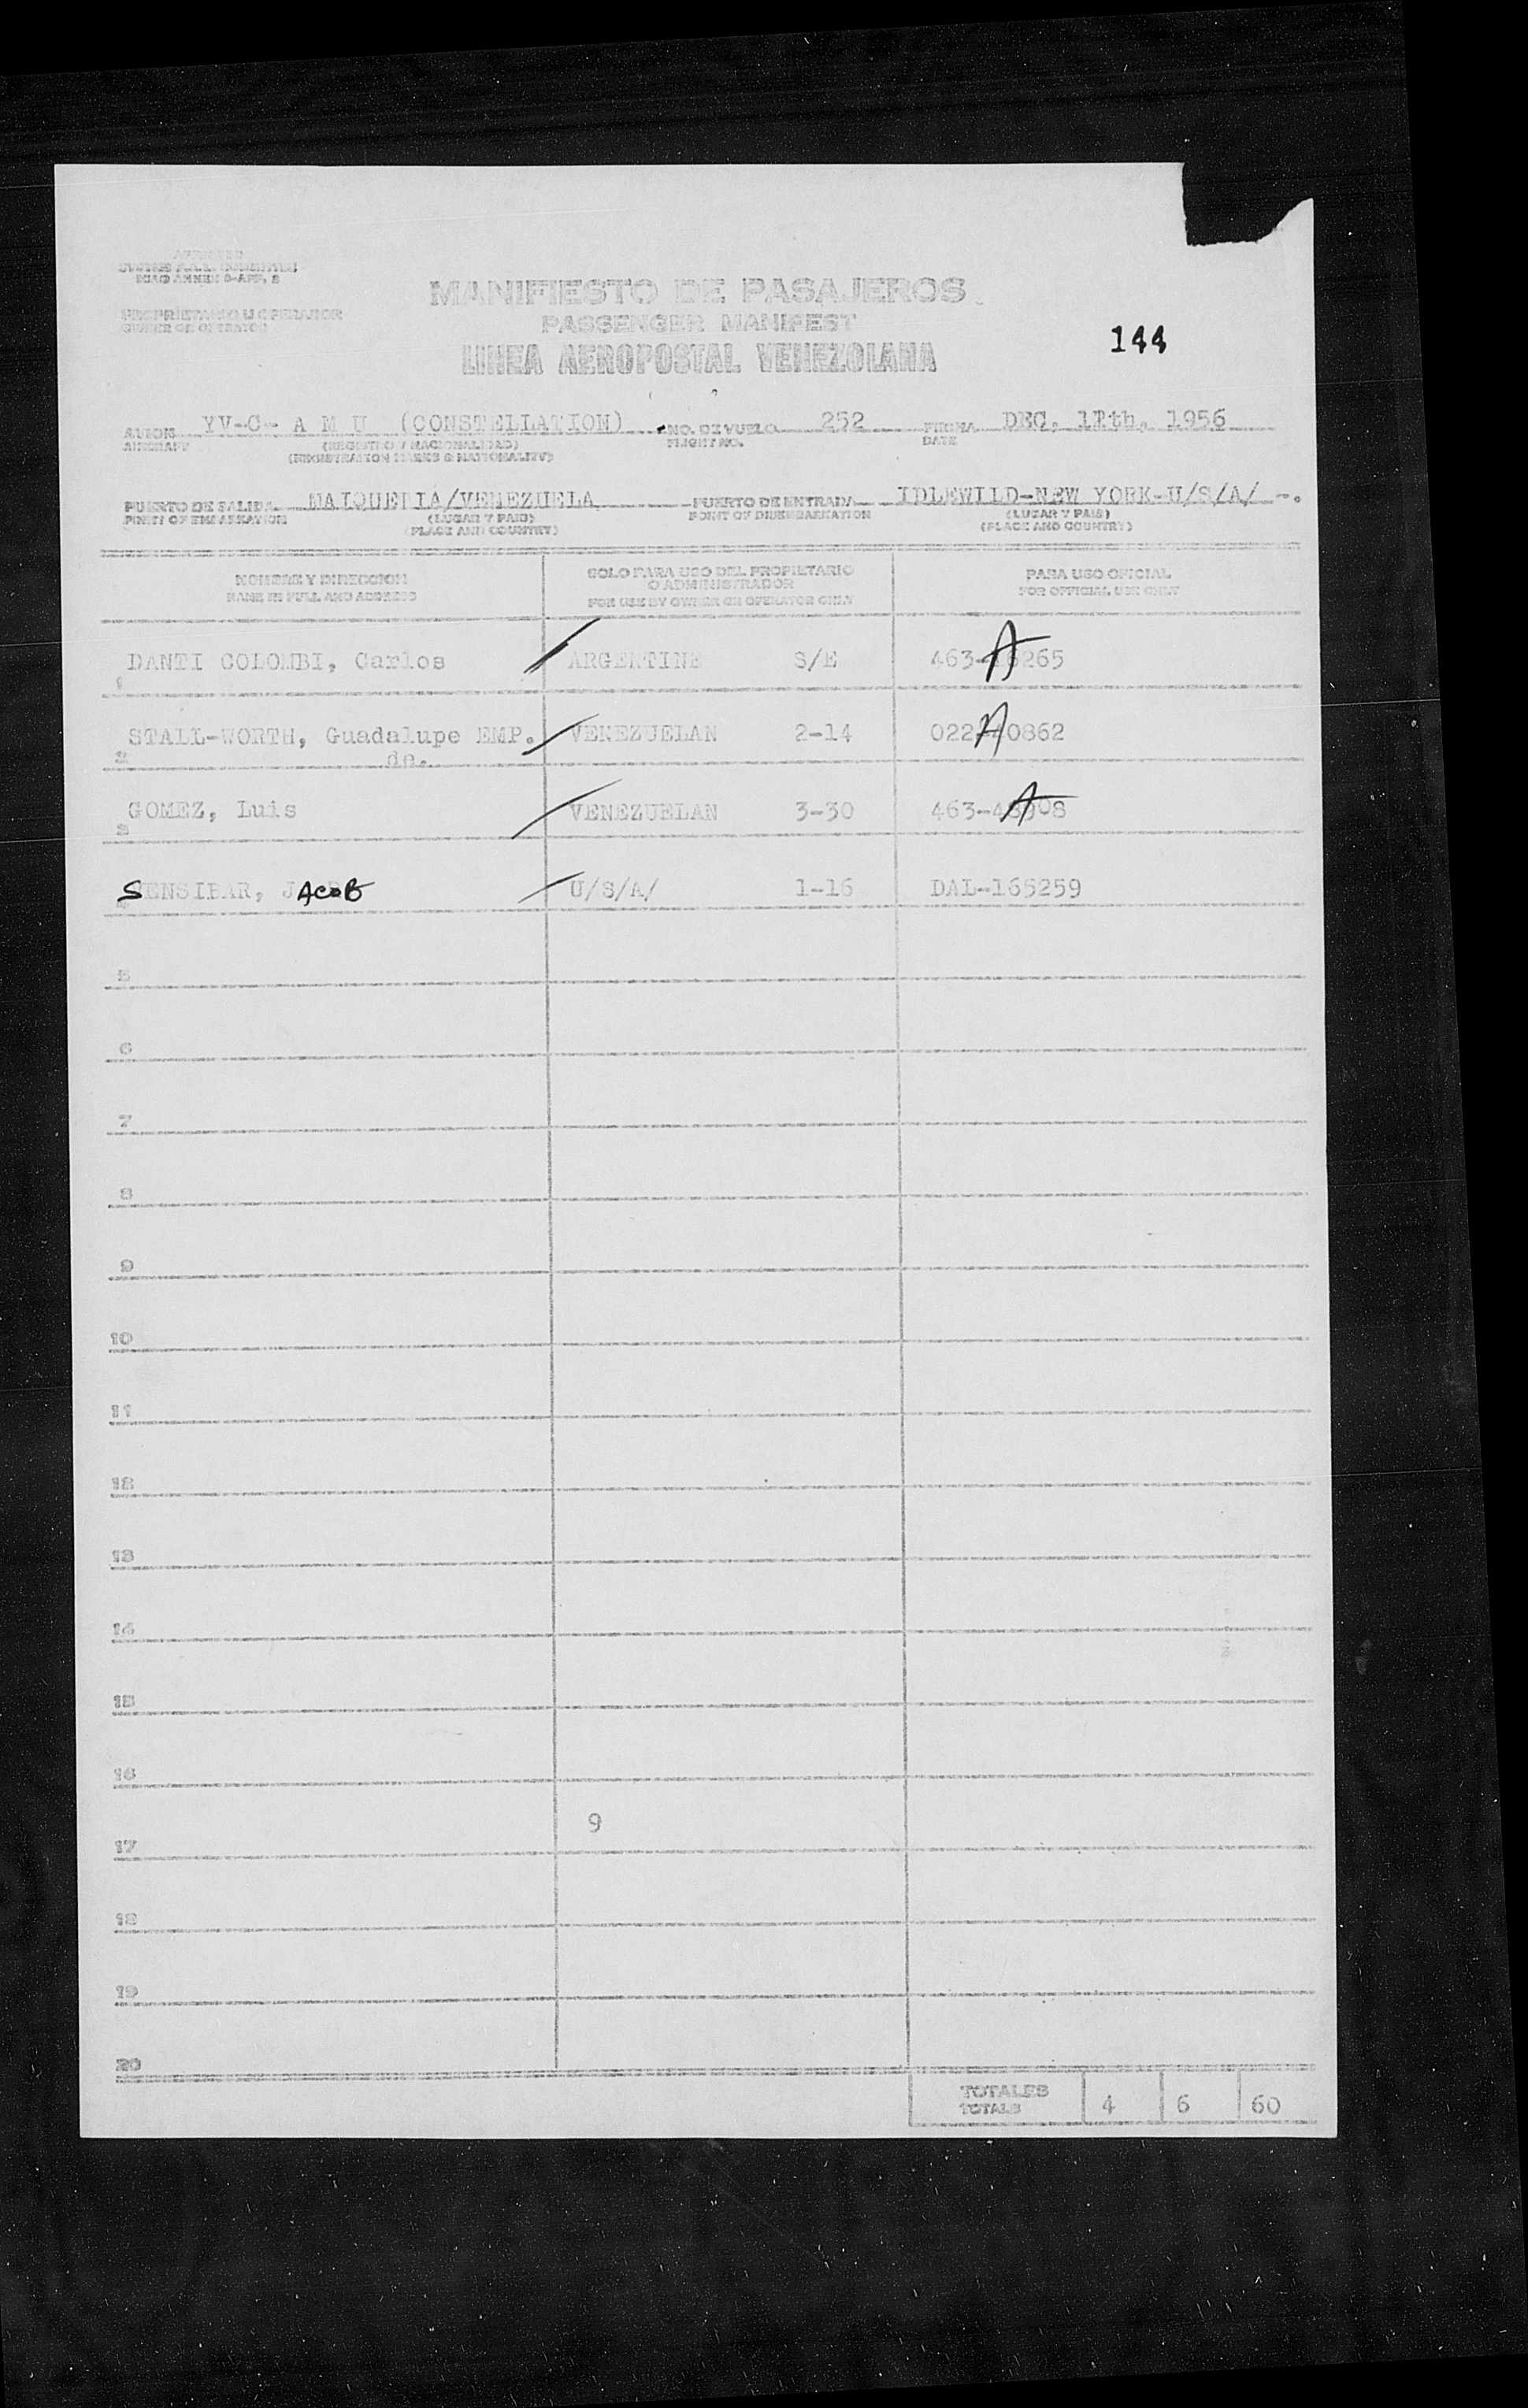 ICAO ANNEX 9-APP. 2
PROPRIETARIO U OPERADOR
OWNER OR OPERATOR
MANIFIESTO DE PASAJEROS
PASSENGER MANIFEST
LINEA AEROPOSTAL VENEZOLANA
144
AVION YV-C- A M U (CONSTELLATION) NO. DE VUELO 252 FECHA DEC, 11th, 1956
AIRCRAFT (REGISTRO Y NACIONALIDAD) FLIGHT NO. DATE
(REGISTRATION MARKS & NATIONALITY)
PUERTO DE SALIDA MAIQUETIA/VENEZUELA PUERTO DE ENTRADA IDLEWILD-NEW YORK-U/S/A/ -.
POINT OF EMBARKATION (LUGAR Y PAIS) POINT OF DISEMBARKATION (LUGAR Y PAIS)
(PLACE AND COUNTRY) (PLACE AND COUNTRY)
NOMBRE Y DIRECCION SOLO PARA USO DEL PROPIETARIO PARA USO OFICIAL
NAME IN FULL AND ADDRESS O ADMINISTRADOR FOR OFFICIAL USE ONLY
FOR USE BY OWNER OR OPERATOR ONLY
DANTI COLOMBI, Carlos ARGENTINE S/E A
1
STALL-WORTH, Guadalupe EMP. VENEZUELAN 2-14 A
2 de.
GOMEZ, Luis VENEZUELAN 3-30 A
3
SENSIBAR, JACOB U/S/A/ 1-16 DAL-165259
5
6
7
8
9
10
11
12
13
14
15
16
9
17
18
19
20
TOTALES 4 6 60
TOTALS